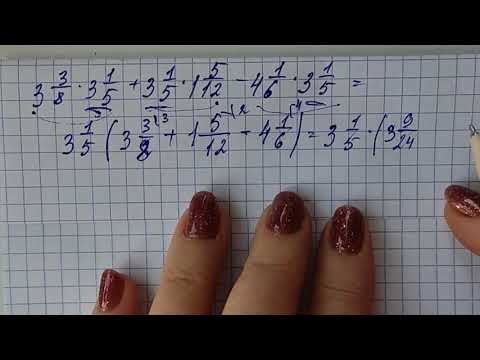 3 3/8 · 3 1/5 + 3 1/5 · 1 5/12 - 4 1/6 · 3 1/5 =
3 1/5 ( 3 3/8 + 1 5/12 - 4 1/6 ) = 3 1/5 · ( 3 9/24